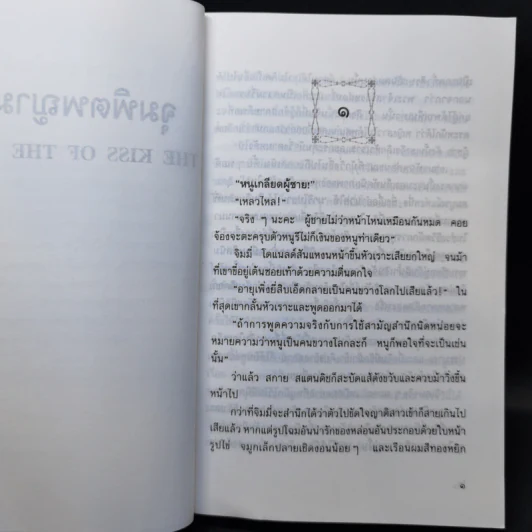 จุมพิตพญาม
THE KISS OF THE
๑
“หนูเกลียดผู้ชาย!”
“เหลวไหล!”
“จริง ๆ นะคะ ผู้ชายไม่ว่าหน้าไหนเหมือนกันหมด คอย
จ้องจะตะครุบตัวหนูรึไม่ก็เงินของหนูท่าเดียว”
จิมมี่ โดแนลด์สันแหงนหน้าขึ้นหัวเราะเสียยกใหญ่ จนม้า
ที่เขาขี่อยู่เต้นซอยเท้าด้วยความตื่นตกใจ
“อายุเพิ่งยี่สิบเอ็ดกลายเป็นคนขวางโลกไปเสียแล้ว!” ใน
ที่สุดเขากลั้นหัวเราะและพูดออกมาได้
“ถ้าการพูดความจริงกับการใช้สามัญสำนึกนิดหน่อยจะ
หมายความว่าหนูเป็นคนขวางโลกละก็ หนูก็พอใจที่จะเป็นเช่น
นั้น”
ว่าแล้ว สกาย สแตนดิชก็สะบัดแส้ดังขวับและควบม้าวิ่งขึ้น
หน้าไป
กว่าที่จิมมี่จะสำนึกได้ว่าตัวไปขัดใจญาติสาวเข้าก็สายเกินไป
เสียแล้ว หากแต่รูปโฉมอันน่ารักของหล่อนอันประกอบด้วยใบหน้า
รูปไข่ จมูกเล็กปลายเชิดงอนน้อย ๆ และเรือนผมสีทองหยิก
๑